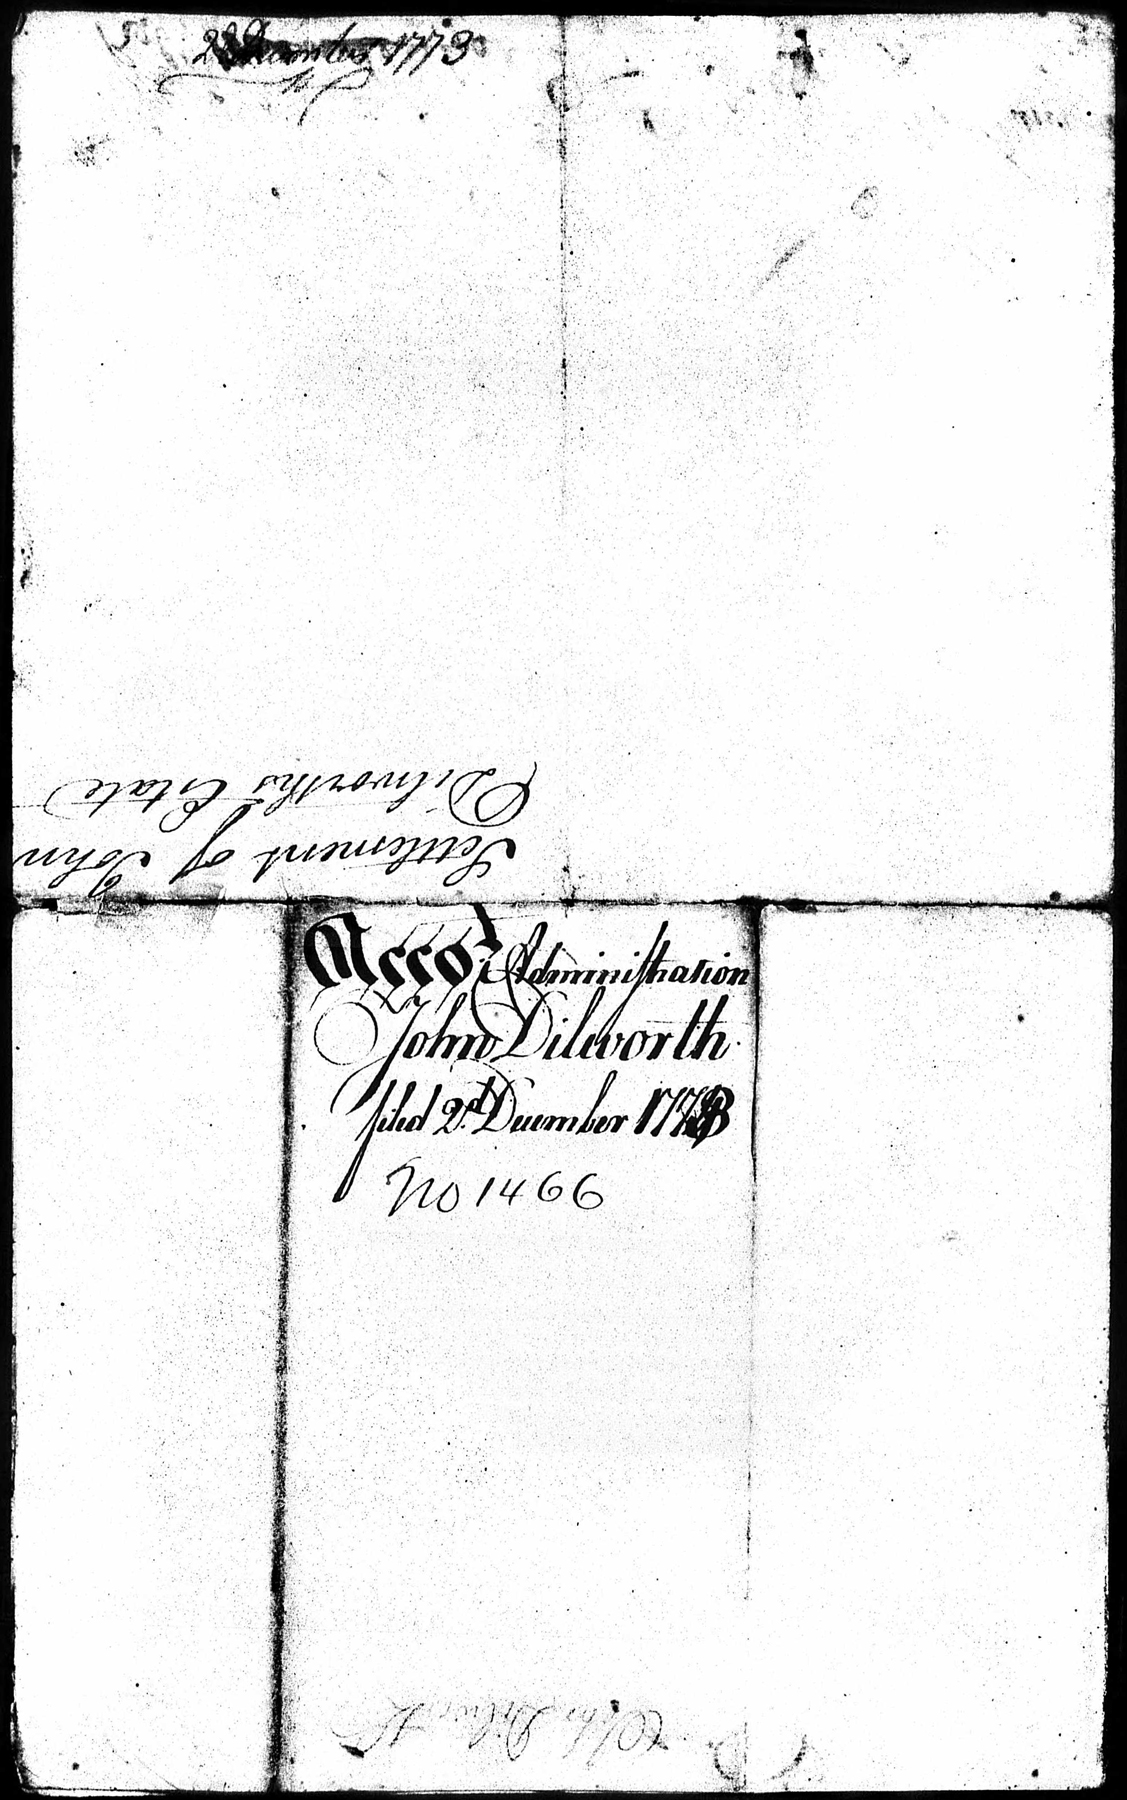 2d December 1773
Settlement of John
Dilworths Estate
Acco.t Administration
John Dilworth
filed 2.d December 1773
No 1466
John Dilworth